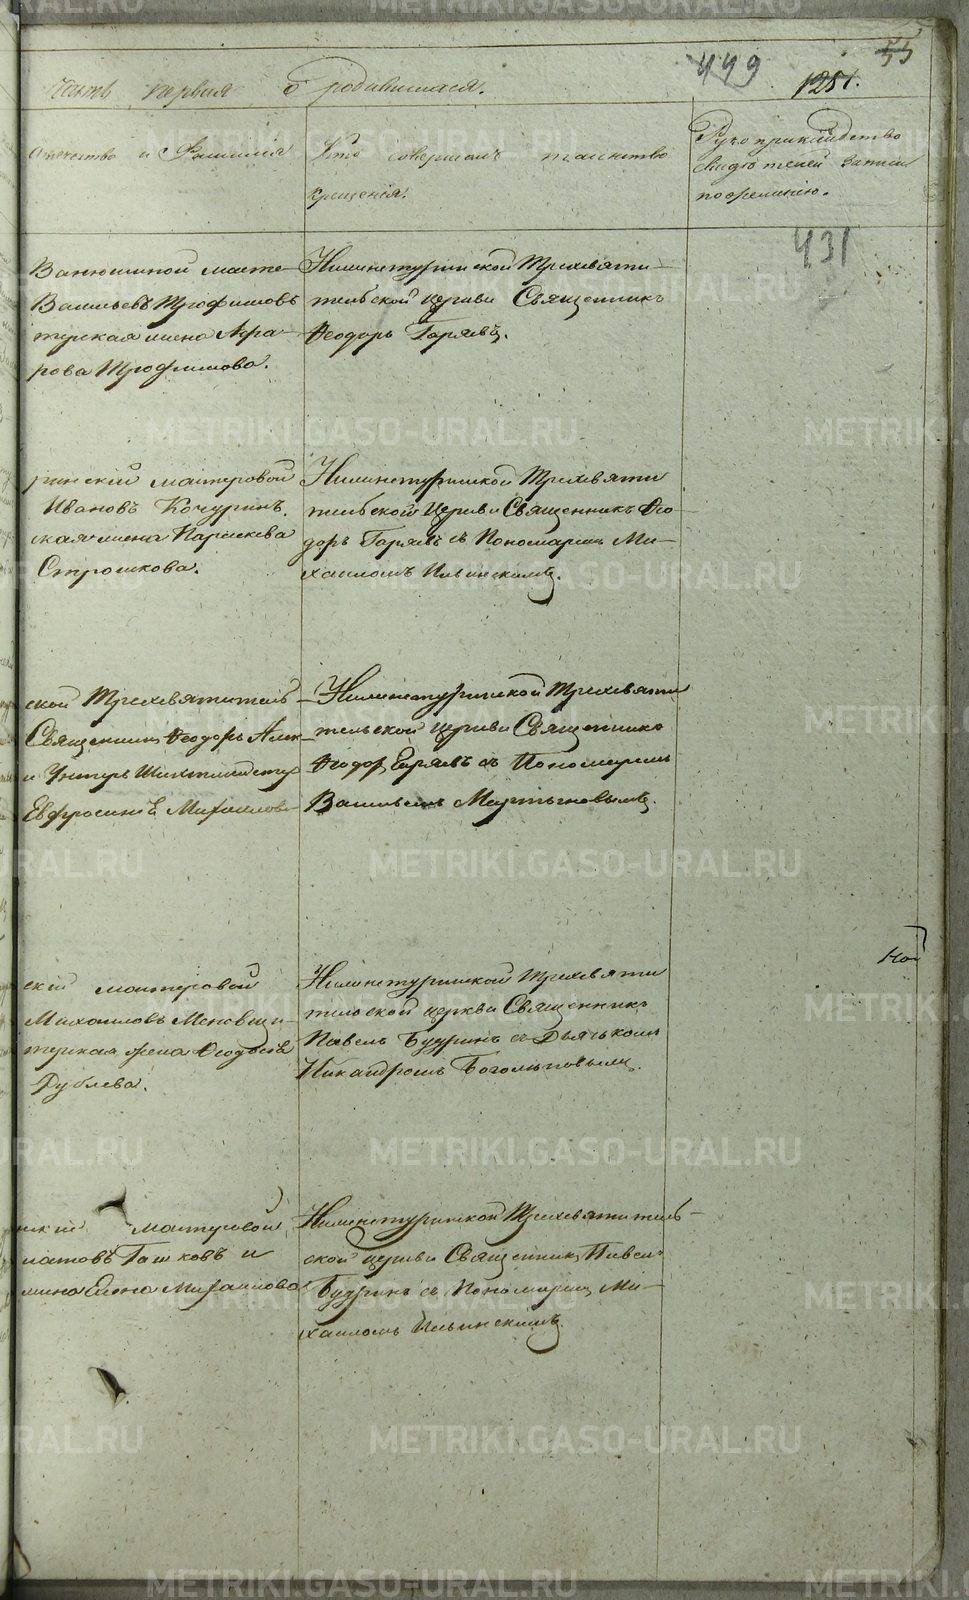 449
55
1251.
Часть первая о родившихся.
отчество и Фамилія
Кто совершалъ таинство
крещенія.
Рукоприкладство
свидѣтелей записи
по желанію.
431
Ванюшиной масте-
Васильевъ Трофимовъ
терская жена
рова Трофимова.
Нижнетуринской Трехсвяти-
тельской церкви Священникъ
Ѳеодоръ Горяевъ.
ринскій мастеровой
Ивановъ Кочуринъ.
ская жена Параскева
Строшкова.
Нижнетуринской Трехсвяти
тельской Церкви Священникъ Ѳео-
доръ Горяевъ съ Пономаремъ Ми-
хаиломъ Ильинскимъ.
ской Трехсвятитель
Священникъ Ѳеодоръ Алек-
и Унтеръ Шихтмейстер
Евфросинія Михаилов
Нижнетуринской Трехсвяти
тельской церкви Священникъ
Ѳеодоръ Горяевъ съ Пономаремъ
Васильемъ Мартыновымъ.
скій мастеровой
Михаиловъ
терская жена Ѳеодосія
Рублева.
Нижнетуринской Трехсвяти
тельской церкви Священникъ
Павелъ Будринъ съ Дьячкомъ
Никандромъ Боголюбовымъ.
нскій мастеровой
натовъ Гашковъ и
жена Елена Михаилова
Нижнетуринской Трехсвятитель-
ской церкви Священникъ Павелъ
Будринъ съ Пономаремъ Ми-
хаиломъ Ильинскимъ.
METRIKI.GASO-URAL.RU